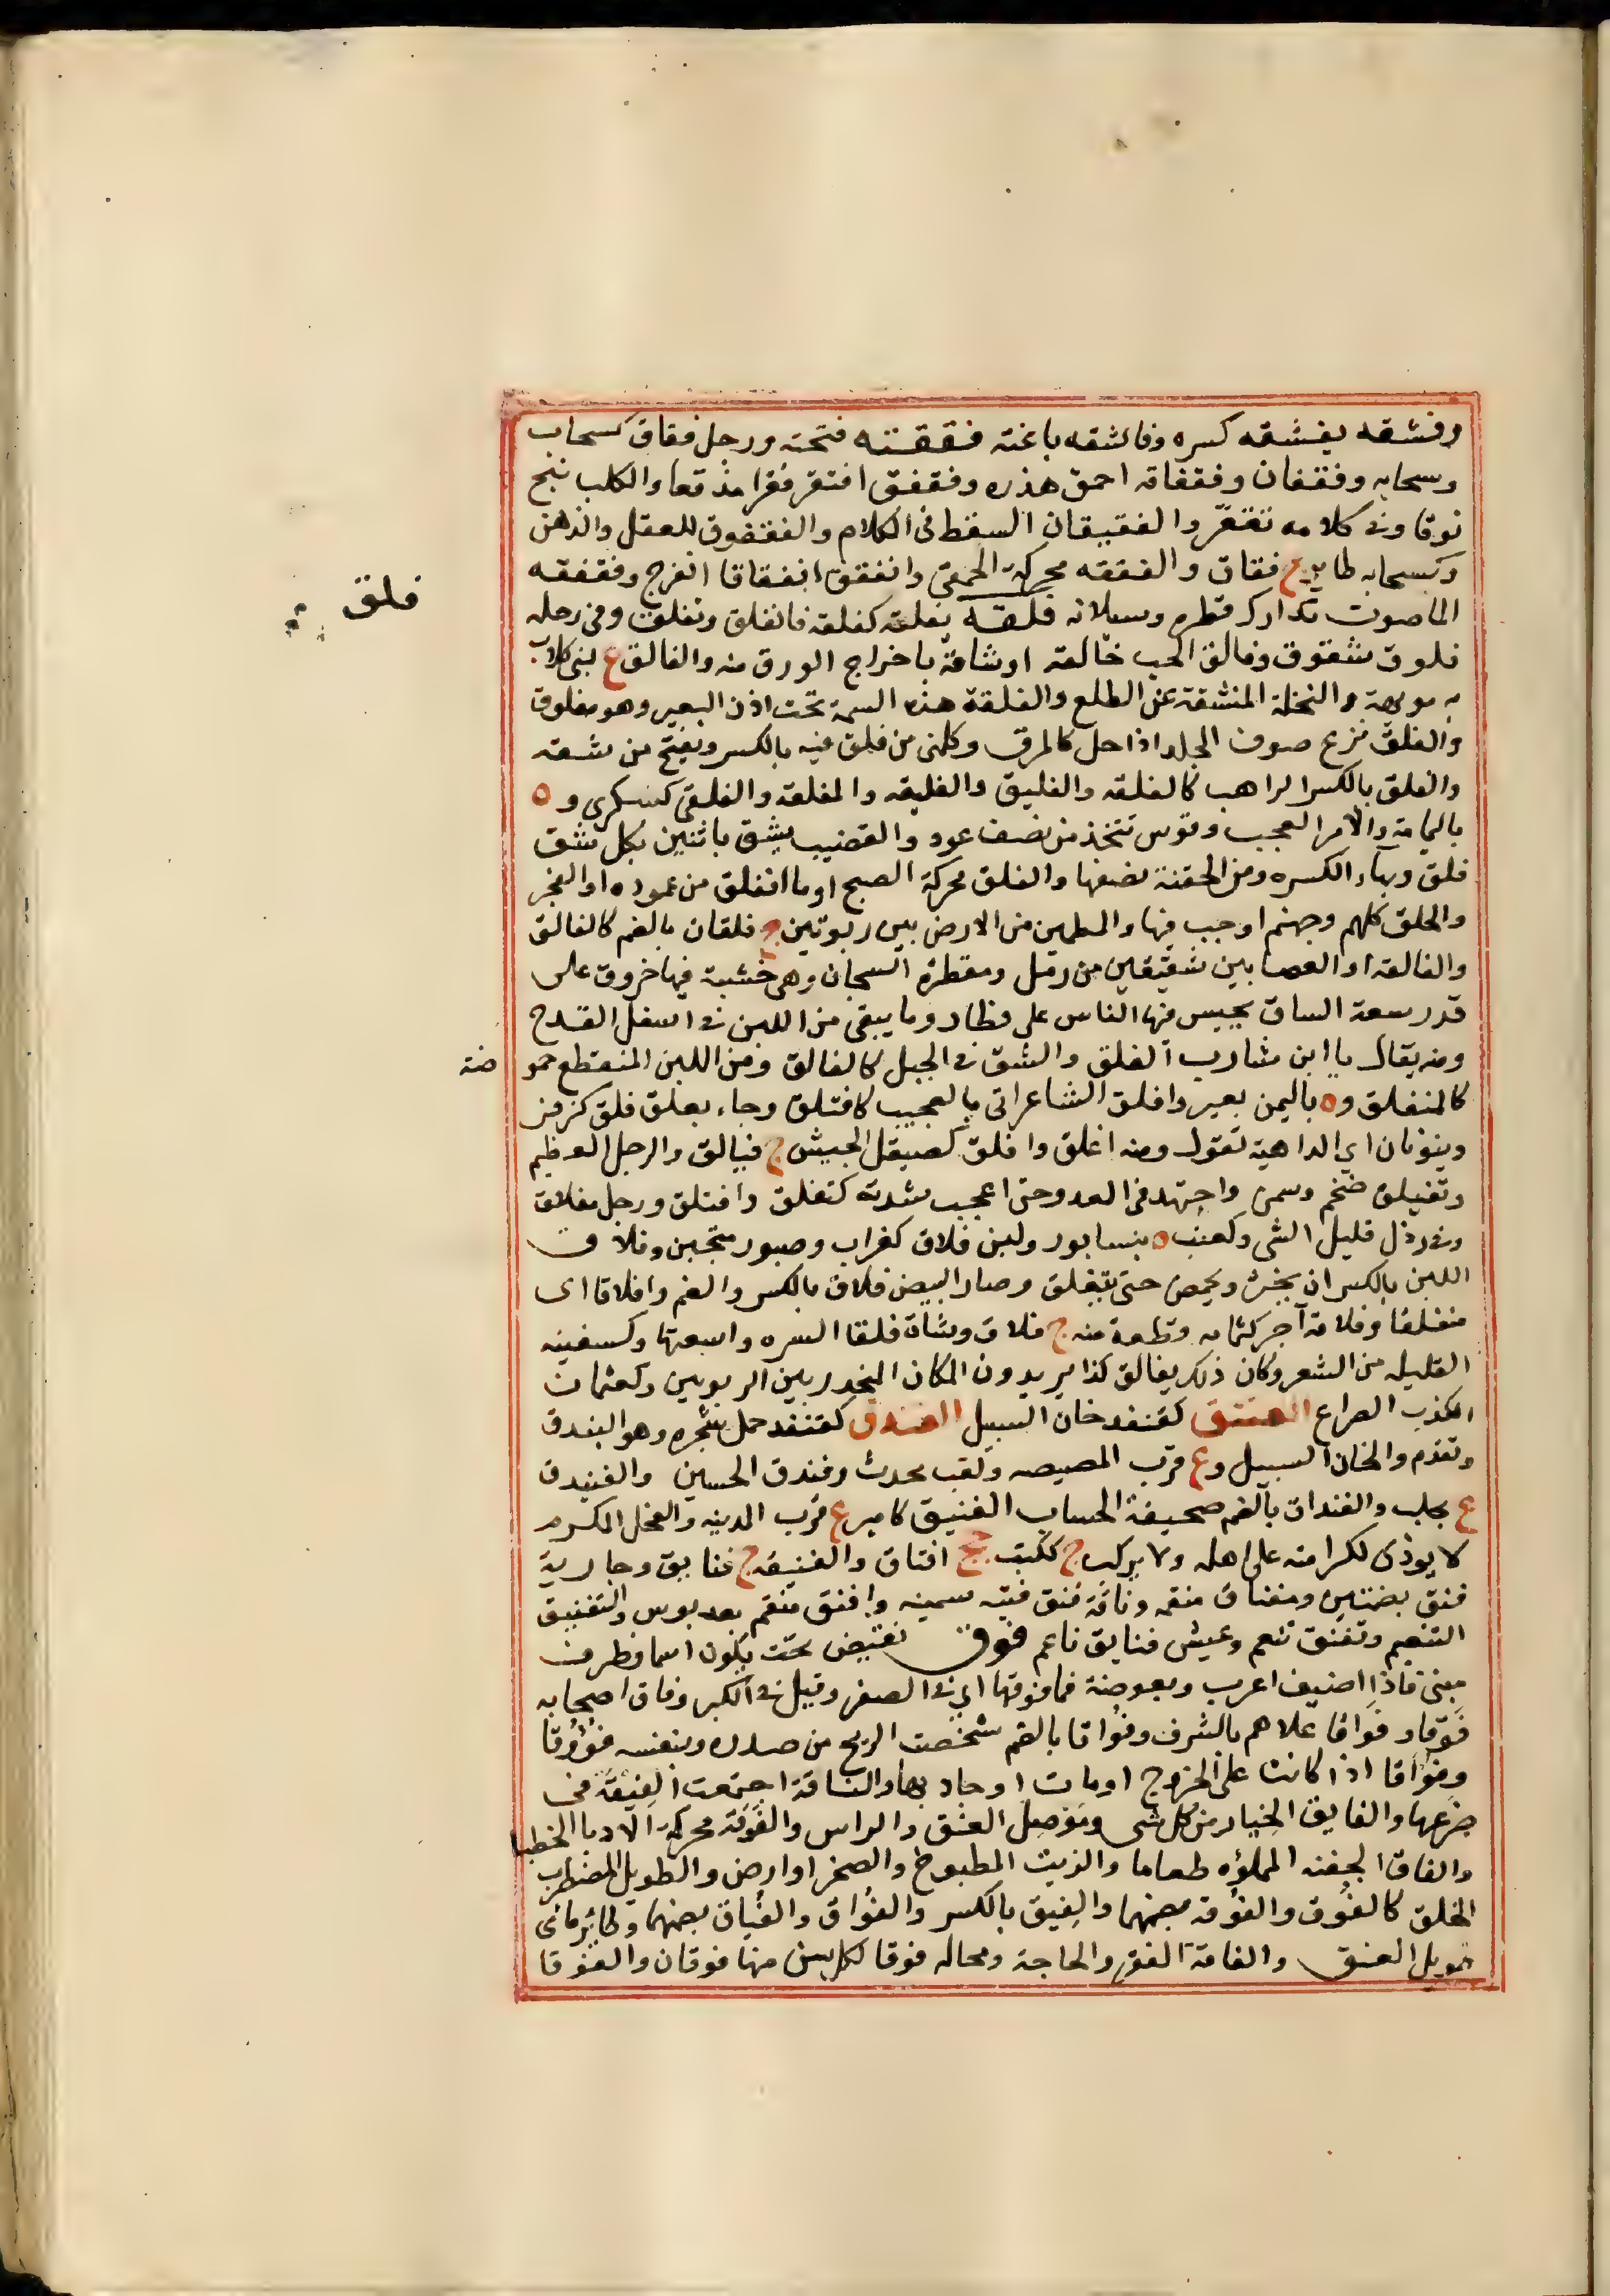 وفشقه يفشقه كسره وفاشقه باغته فققته فتحته ورجل فقاق كسحاب
وسحابه وفقفان وفقفاقه احمق هذره وفقفق افتقر فقرا مدقعا والكلب نبح
فوقا وفى كلامه تقعر والفقيقان السقط فى الكلام والفقفوق للعقل والذهن
وكسحابه طاير ج فقاق والفققه محركة الحمقى وانفقق انفقاقا انفرج وفقفقه
الما صوت تدارك قطره وسيلانه فلقه يفلقه كفلقه فانفلق وتفلق وفى رجله
فلوق شقوق وفالق الحب خالقه اوشاقه باخراج الورق منه والفالق ع لبنى كلاب
به مويهة والنخلة المنشقة عن الطلع والفلقة هذه السمة تحت اذن البعير وهو مفلوق
والفلق نزع صوف الجلد اذا حل كالمرق وكلمنى من فلق فيه بالكسر ويفتح من شقه
والفلق بالكسر الداهيه كالفلقه والفليق والفليقه والمفلقه والفلقى كسكرى و ه
باليمامة والامر العجب وقوس تتخذ من نصف عود والقضيب يشق باثنين فكل شق
فلق وبهاء الكسره ومن الجفنة نصفها والفلق محركة الصبح او ما انفلق من عموده او الفجر
والخلق كلهم وجهنم او جب فيها والمطمئن من الارض بين ربوتين ج فلقان بالضم كالفالق
والفالقه او الفضا بين شقيقين من رمل ومقطرة السجان وهى خشبة فيها خروق على
قدر سعة الساق يحبس فيها الناس على قطار وما يبقى من اللبن فى اسفل القدح
ومنه يقال يا ابن شارب الفلق والشق فى الجبل كالفالق ومن اللبن المنقطع حمو
ضة
كالمنفلق و ه باليمن بعير وافلق الشاعر اتى بالعجيب كافتلق وجاء بعلق فلق كزفر
وينونان اى الداهية تقول ومنه اعلق وافلق كصيقل الجيش ج فيالق والرجل العظيم
وتفيلق ضخم وسمن واجتهد فى العدو حتى اعجب شدته كتفلق وافتلق ورجل مفلاق
دنى رذل قليل الشى وكعنب ه بنيسابور ولبن فلاق كغراب وصبور متجبن وفلاق
اللبن بالكسر ان يخثر ويحمض حتى يتفلق وصار البيض فلاق بالكسر والضم وافلاقا اى
متفلقا وفلاقة آجر كثمامه قطعة منه ج فلاق وشاة فلقا السره واسعتها وكسفينه
القليله من الشعر وكان ذلك بفالق كذا يريدون المكان المنحدر بين الربوين وكعثمان
الكذب الصراع الفنتق كقنفذ خان السبيل الفندق كقنفذ حمل شجره وهو البندق
وتقدم والخان السبيل وع قرب المصيصه ولقب محدث وفندق الحسين والفنيدق
ع بحلب والفنداق بالضم صحيفة الحساب الفنيق كامير ع قرب المدينه والفحل المكرم
لا يوذى لكرامته على اهله ولا يركب ج ككتب جج افناق والفنيقه ج فنايق وجارية
فنق بضمتين ومفناق منعمه وناقة فنق فتيه سمينه وافنق تنعم بعد بوس والتفنيق
التنعيم وتفنق تنعم وعيش فنايق ناعم فوق نقيض تحت يكون اسما وظرفا
مبنى فاذا اضيف اعرب وبعوضة فما فوقها اى فى الصغر وقيل فى الكبر وفاق اصحابه
فوقا وفواقا علاهم بالشرف وفُواقا بالضم شخصت الريح من صدره وبنفسه فُؤُوقا
وفُوَاقا اذا كانت على الخروج او مات او جاد بها والناقة اجتمعت الفِيْقَة فى
ضرعها والفايق الخيار من كل شى وموصل العنق والراس والفَوَقَة محركة الادبا الخطبا
والفاق الجفنه المملؤه طعاما والزيت المطبوخ والصحرا او ارض والطويل المضطرب
الخلق كالفُوق والفُوقه بضمهما والفِيق بالكسر والفُواق والفُياق بضمهما وطائر مائى
طويل العنق والفاقة الفقر والحاجة ومحاله فوقا لكل سن منها فوقان والفوقا
فلق